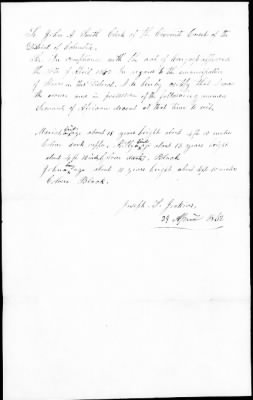 To John A Smith Clerk of the Circuit Court of the
District of Columbia.
Sir In compliance with the act of Congress approved
the 16th of April 1862 in regard to the emancipation
of slaves in this District, I do hereby certify that I was
the owner and in possession of the following named
Servants of African descent at that time to wit,
Maria age about 18 years height about 4ft 10 inches
Color dark age about 13 years height
about 4ft inches Color Black
John age about 11 years height about 4ft 10 inches
Color Black.
Joseph S. Jenkins
29 April 1862